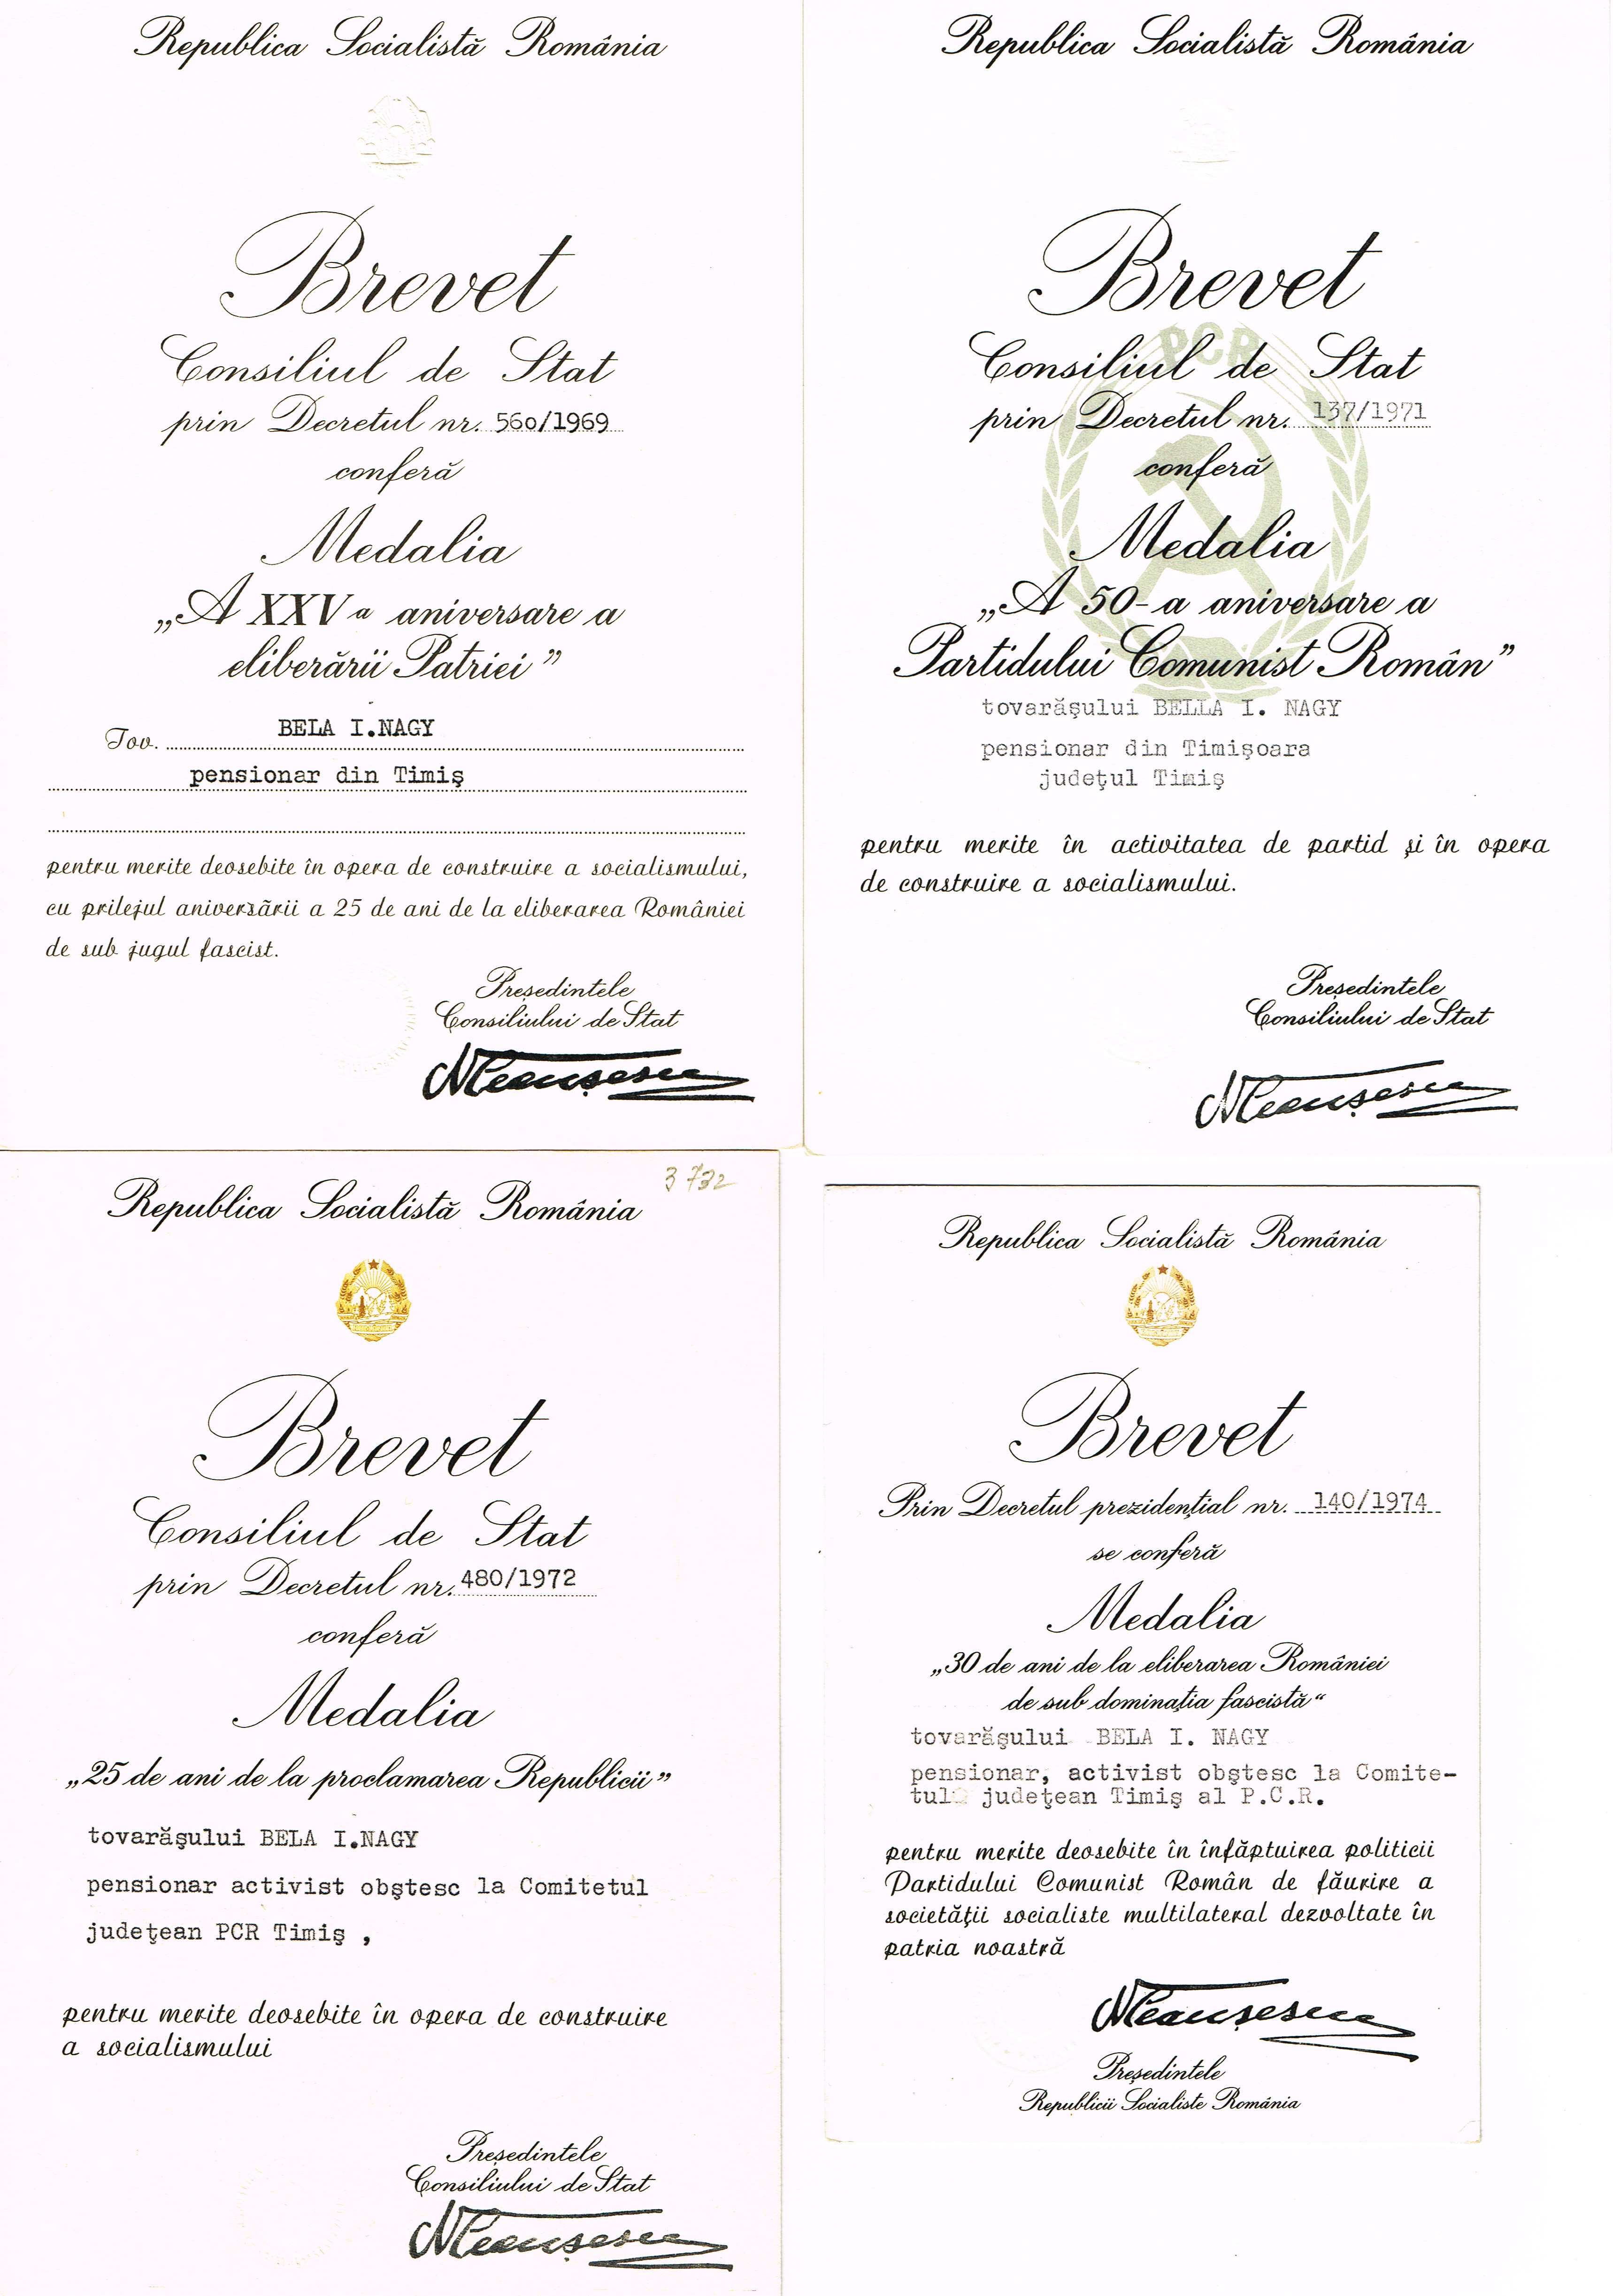 Republica Socialistă România
Brevet
Consiliul de Stat
prin Decretul nr. 560/1969
conferă
Medalia
„A XXV a aniversare a
eliberării Patriei”
Tov. BELA I.NAGY
pensionar din Timiş
pentru merite deosebite în opera de construire a socialismului,
cu prilejul aniversării a 25 de ani de la eliberarea României
de sub jugul fascist.
Preşedintele
Consiliului de Stat
NCeauşescu
Republica Socialistă România
PCR
Brevet
Consiliul de Stat
prin Decretul nr. 137/1971
conferă
Medalia
„A 50-a aniversare a
Partidului Comunist Român”
tovarăşului BELLA I. NAGY
pensionar din Timişoara
judeţul Timiş
pentru merite în activitatea de partid şi în opera
de construire a socialismului.
Preşedintele
Consiliului de Stat
NCeauşescu
3732
Republica Socialistă România
Brevet
Consiliul de Stat
prin Decretul nr. 480/1972
conferă
Medalia
„25 de ani de la proclamarea Republicii”
tovarăşului BELA I.NAGY
pensionar activist obştesc la Comitetul
judeţean PCR Timiş ,
pentru merite deosebite în opera de construire
a socialismului
Preşedintele
Consiliului de Stat
NCeauşescu
Republica Socialistă România
Brevet
Prin Decretul prezidenţial nr. 140/1974
se conferă
Medalia
„30 de ani de la eliberarea României
de sub dominaţia fascistă“
tovarăşului BELA I. NAGY
pensionar, activist obştesc la Comite-
tul judeţean Timiş al P.C.R.
pentru merite deosebite în înfăptuirea politicii
Partidului Comunist Român de făurire a
societăţii socialiste multilateral dezvoltate în
patria noastră
NCeauşescu
Preşedintele
Republicii Socialiste România